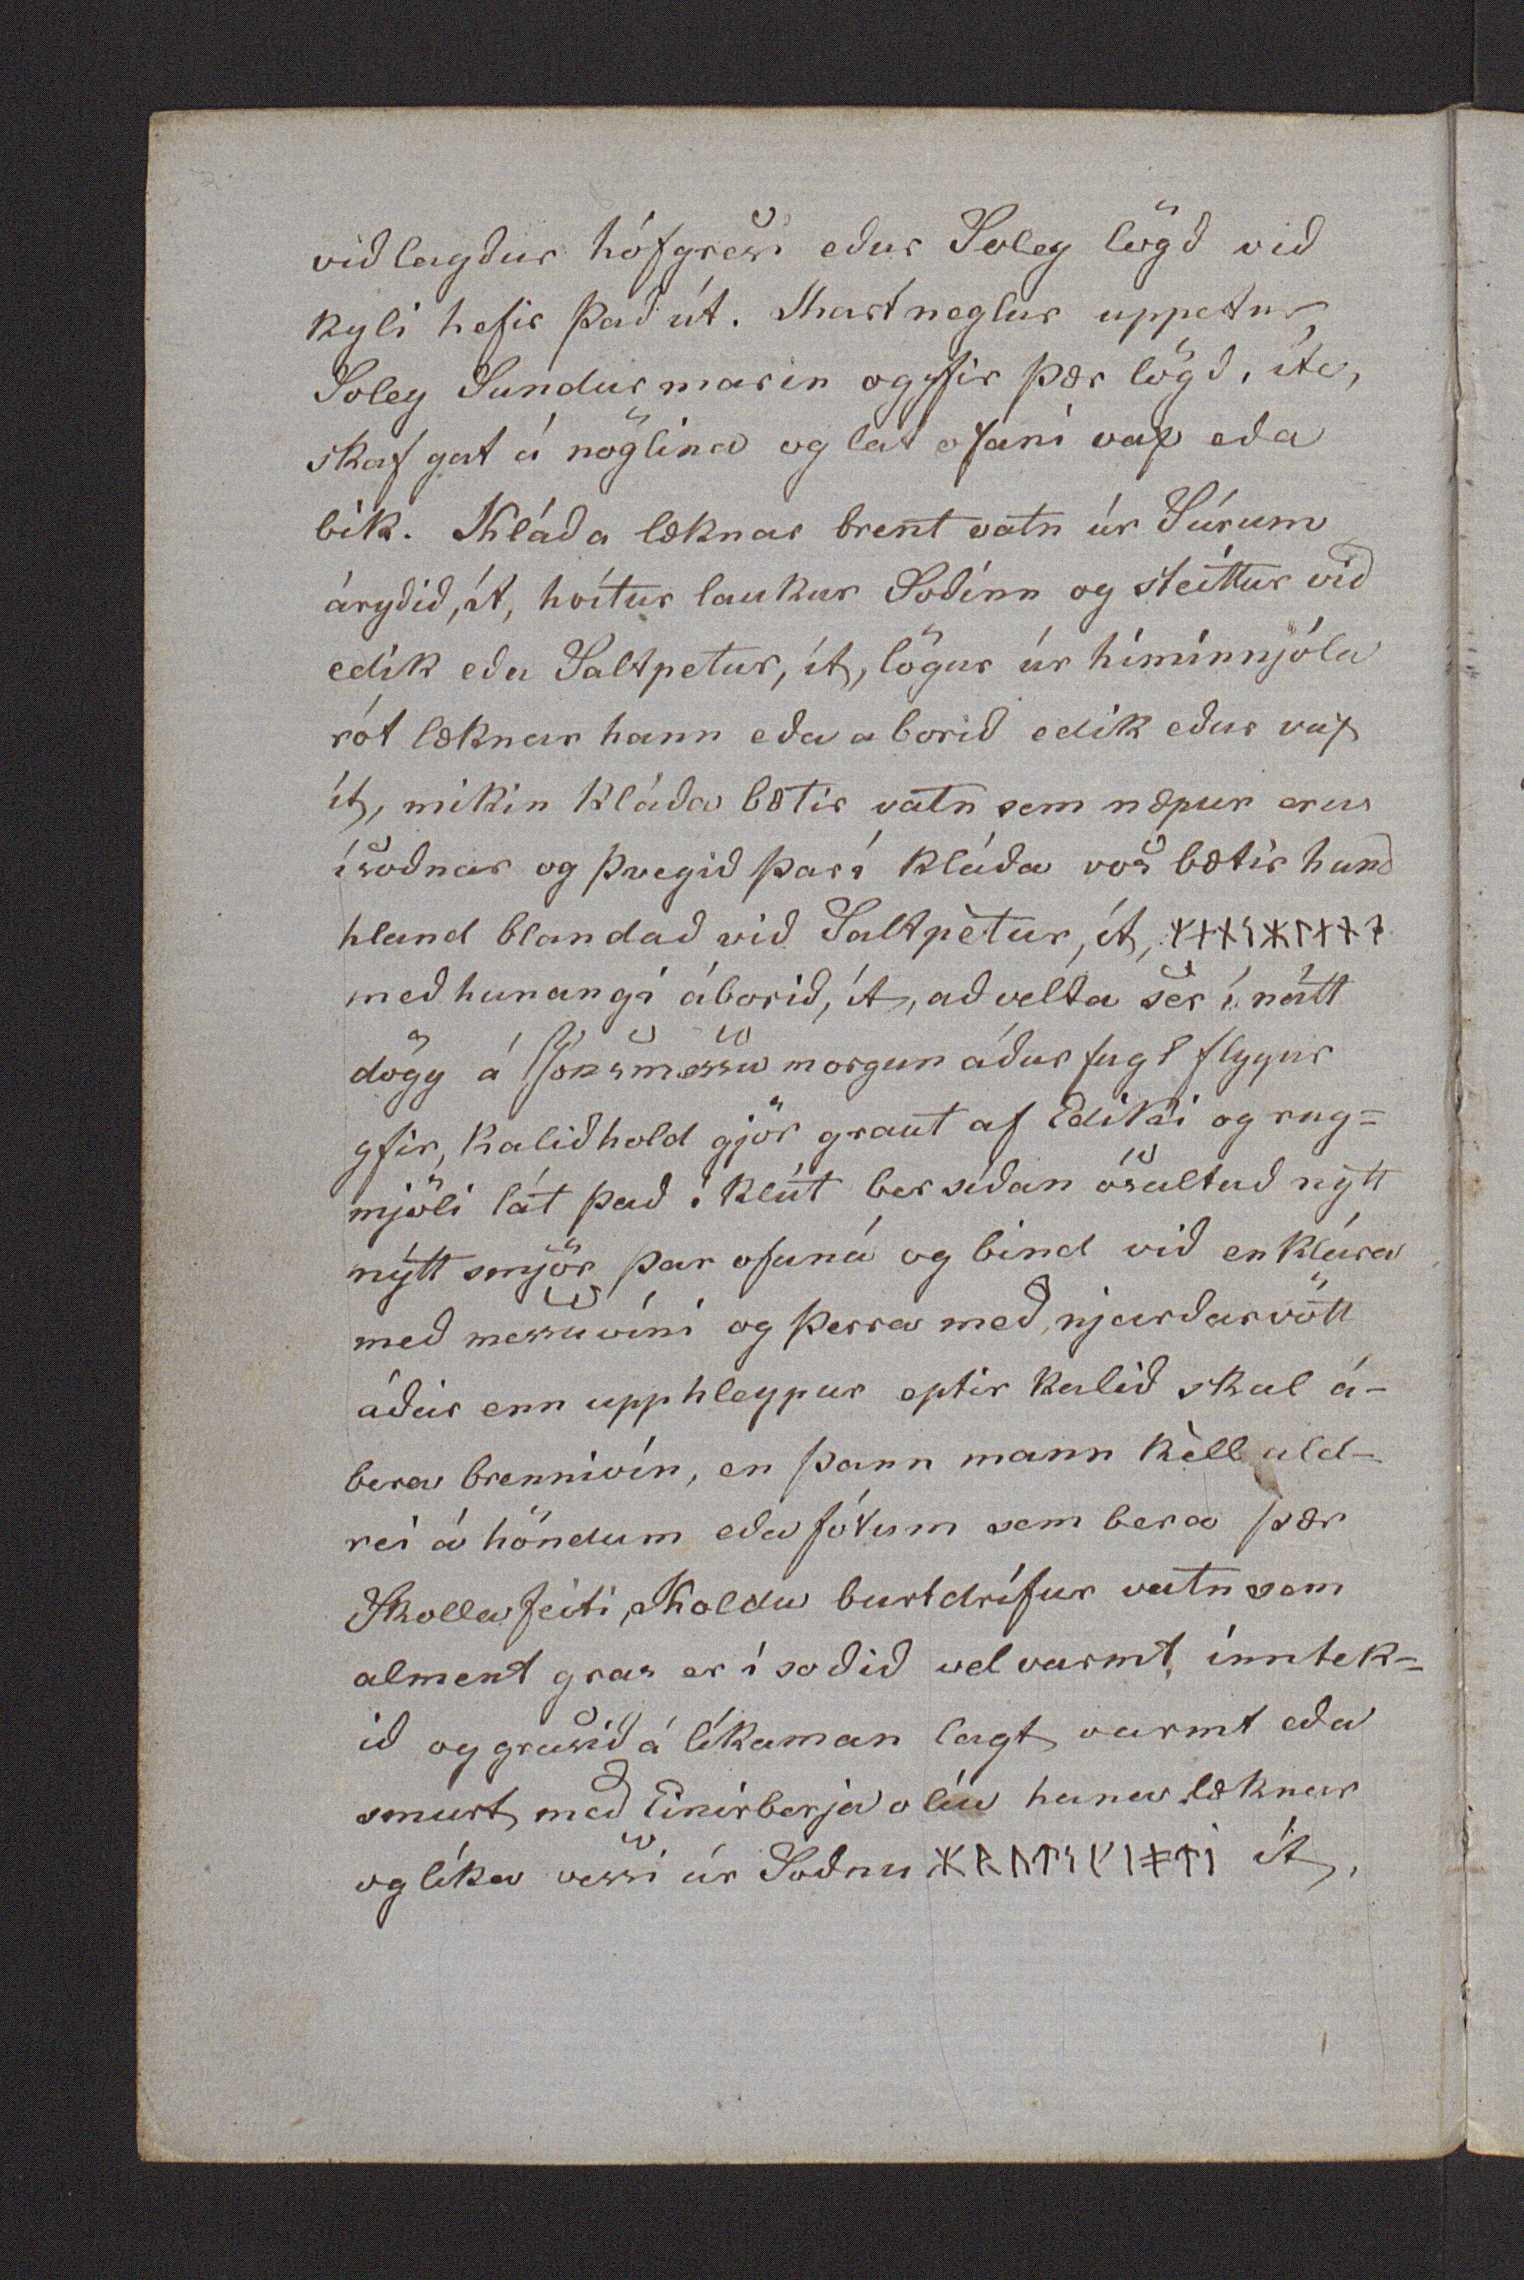 viðlagður hófgresi eður Soley lögð við
kyli hefir það út. Skart neglur uppetur,
Soley Sundur marin og yfir þær lögð, ite,
skaf gat á nöglina og lat ofaní vax eða
bik. Kláða læknar brent vatn úr Súrum
áryðið, it, hvítur laukur Soðinn og steittur við
edik eða Saltpetur, it, lögur úr himinnjóla
rót læknar hann eða a borið edik eður vax
it, mikin kláða bætir vatn sem næpur eru
ísoðnar og þvegið þarí kláða vos bætir hund
hland blandað við Saltpètur, it, ᛉᚾᚾᛋᛡᛚᚾᚾᚦ
með hunangi áborið, it, að velta sér í nátt
dögg á Jónsmessu morgun áður fugl flygur
yfir, kalið hold gjör graut af Ediki og rug=
mjöli lát það í klút ber síðan ósaltað nýtt
nýtt smjör þar ofaná og bind við en klára
með messuvíni og þerra með njarðarvött
áður enn upphleypur eptir kalið skal á-
bera brennivín, en þann mann kèll ald-
rei á höndum eða fótum sem bera þær
Skolla feiti, Koldu burtdrífur vatn sem
alment gras er í soðið vel varmt inntek=
ið og grasið á líkaman lagt varmt eða
smurt með Einirberja olíu hana læknar
og líka vessi úr Soðnu ᛡᚱᚢᛏᛋᚴᛁᚯᛏᛁ it,